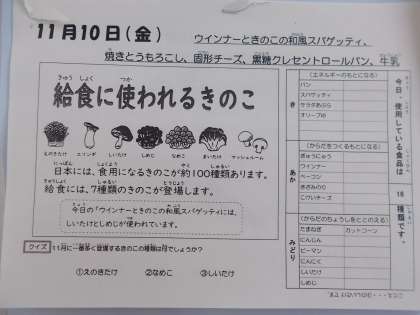 11月10日(金)
ウインナーときのこの和風スパゲッティ、
焼きとうもろこし、固形チーズ、黒糖クレセントロールパン、牛乳
給食に使われるきのこ
えのきたけ エリンギ しいたけ しめじ なめこ まいたけ マッシュルーム
日本には、食用になるきのこが約100種類あります。
給食には、7種類のきのこが登場します。
今日の「ウインナーときのこの和風スパゲッティには、
しいたけとしめじが使われています。
クイズ 11月に一番多く登場するきのこの種類は何でしょうか?
①えのきたけ ②なめこ ③しいたけ
今日、使用している食品は
18
種類です。
き
(エネルギーのもとになる)
パン
スパゲッティ
サラダあぶら
オリーブゆ
あか
(からだをつくるもとになる)
ぎゅうにゅう
ウインナー
ベーコン
きざみのり
こけいチーズ
みどり
(からだのちょうしをととのえる)
たまねぎ カットコーン
にんじん
ピーマン
にんにく
しいたけ
しめじ